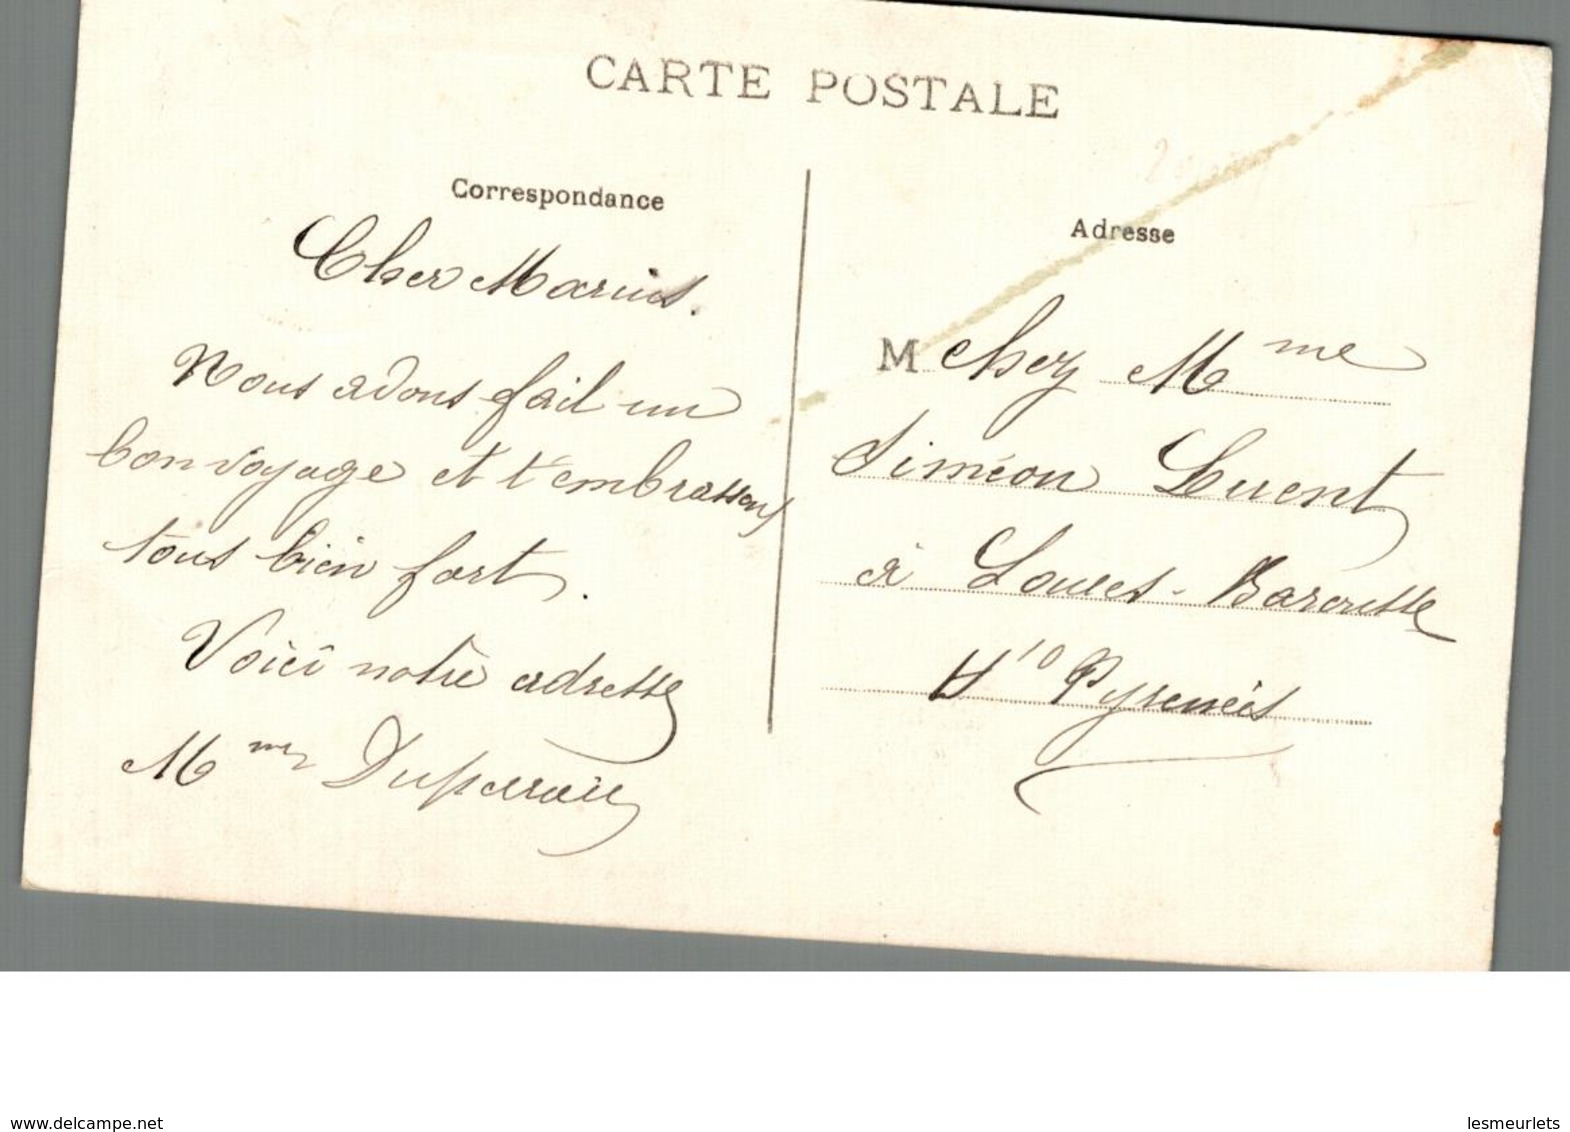 CARTE POSTALE
Correspondance
Cher Marius.
Nous avons fait un
bon voyage et t'embrassons
tous bien fort.
Voici notre adresse
Mme
Adresse
M chez Mme
Siméon Luent
à Loures-Barousse
Htes Pyrénées
www.delcampe.net
lesmeurlets